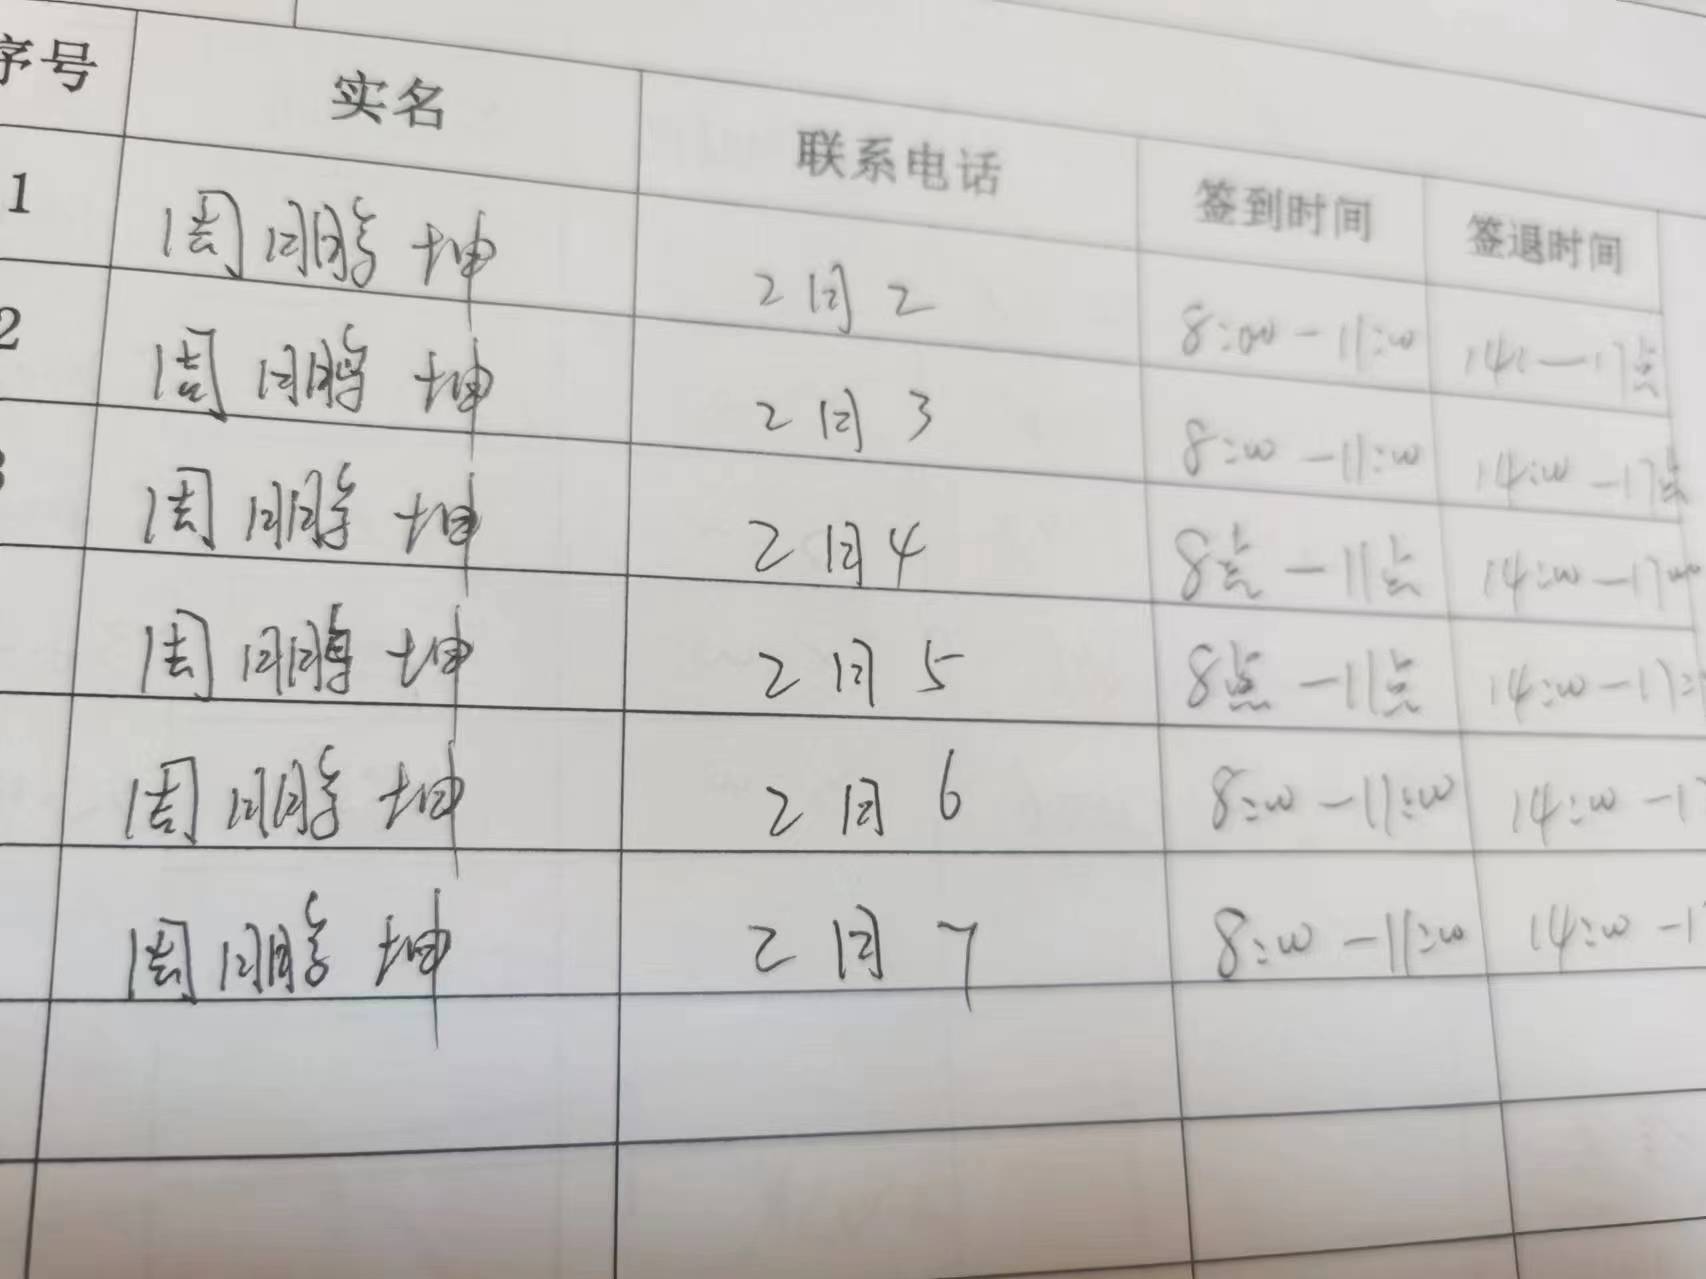 序号 实名 联系电话 签到时间 签退时间
1 周鹏坤 2月2 8:00-11:00 14:-17点
2 周鹏坤 2月3 8:00-11:00 14:00-17点
周鹏坤 2月4 8点-11点 14:00-17:00
周鹏坤 2月5 8点-11点 14:00-17:
周鹏坤 2月6 8:00-11:00 14:00-17
周鹏坤 2月7 8:00-11:00 14:00-1